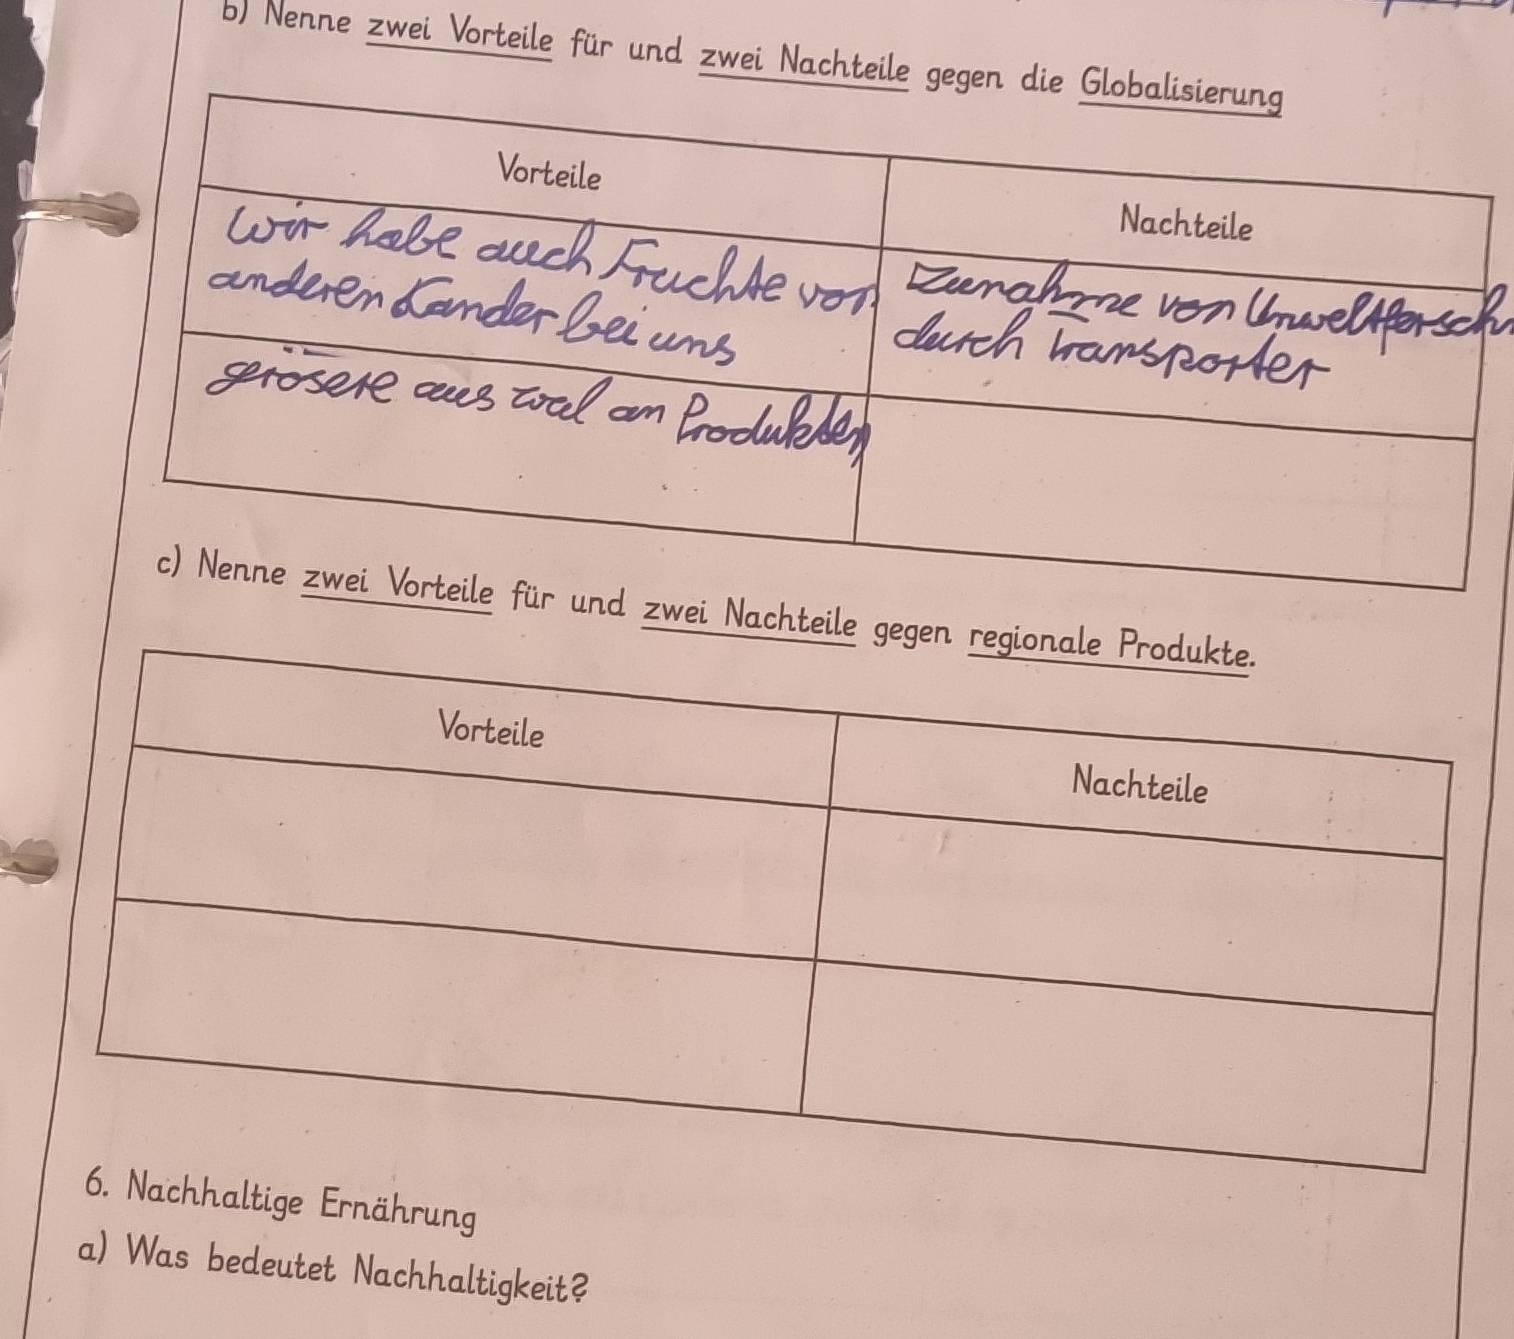 b) Nenne zwei Vorteile für und zwei Nachteile gegen die Globalisierung
Vorteile
Nachteile
Wir habe auch Fruchte von
anderen Länder bei uns
Zunahme von Umweltfersch
durch transporter
grösere aus wal an Produkten
c) Nenne zwei Vorteile für und zwei Nachteile gegen regionale Produkte.
Vorteile
Nachteile
6. Nachhaltige Ernährung
a) Was bedeutet Nachhaltigkeit?